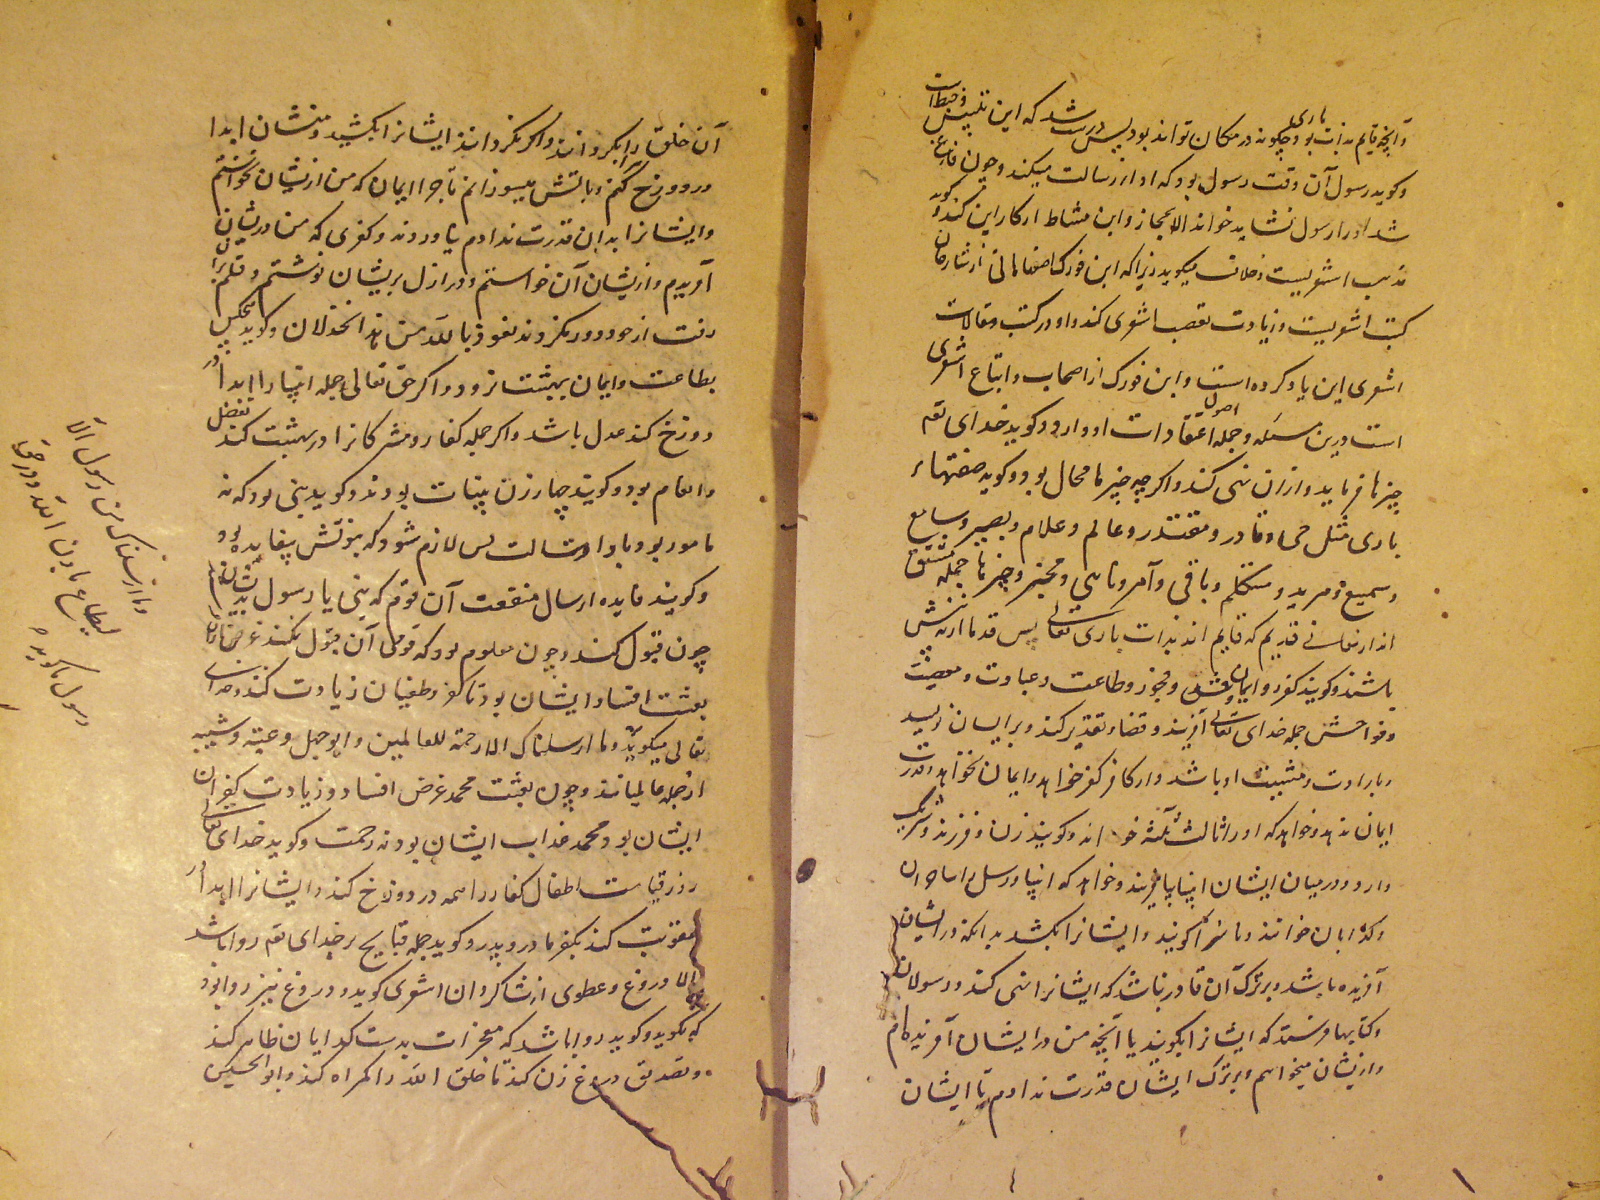 وآنچه قایم بذات باری بود چگونه در مکان تواند بود پس درست شد که این تلبیس و خطاست
و گوید رسول آن وقت رسول بود که ادا رسالت میکند و چون فارغ
شد او را رسول نشاید خواند الا بمجاز و این کند و گوید
مذهب اشعریست و خلاف میگوید زیرا که ابن فورک اصفهانی از شارحان
کتب اشعریست و زیادت تعصب اشعری کند و او در کتب و مقالات
اشعری این یاد کرده است و ابن فورک از اصحاب و اتباع اشعری
است درین مسئله و جمله اصول اعتقادات او دارد و گوید خدای تعم
چیزها فرماید و از آن نهی کند و اگر چه چیزها محال بود و گوید صفتهاء
باری مثل حی و قادر و مقتدر و عالم و علام و بصیر و سامع
و سمیع و مرید و متکلم و باقی و آمر و ناهی و مخبر و چیزها جمله مشتق
اند از معانی قدیم که قایم اند بذات باری تعالی پس قدما
باشند و گویند کفر و ایمان و فسق و فجور و طاعت و عبادت و معصیت
و فواحش جمله خدای تعالی آفریند و قضا و تقدیر کند و برایشان
و بارادت و مشیت او باشد و از کافر کفر خواهد و ایمان نخواهد و قدرت
ایمان ندهد و خواهد که او را ثالث ثلثه خوانند و گویند زن و فرزند و شریک
دارد و در میان ایشان انبیا بیافریند و خواهد که انبیا و رسل را ساحران
و کذابان خوانند و ناسزا گویند و ایشانرا بکشند بدانکه در ایشان
آفریده باشد و بر ترک آن قادر نباشد که ایشانرا نهی کند و رسولان
و کتابها فرستد که ایشانرا بگویند یا آنچه من در ایشان آفریده‌ام
و ازیشان میخواهم و بر ترک ایشان قدرت ندادم تا ایشان
آن خلق را بگردانند و اگر نگردانند ایشانرا بکشید و منشان ابدا
در دوزخ کنم و بآتش میسوزانم تا چرا ایمان که من ازیشان نخواستم
و ایشانرا بدان قدرت ندادم نیاوردند و کفری که من در ایشان
آفریدم و ازیشان آن خواستم و در ازل بریشان نوشتم و قلم بران
رفت از خود دور نکردند نعوذ بالله من هذا الخذلان و گوید هیچکس
بطاعت و ایمان ببهشت نرود و اگر حق تعالی جمله انبیا را ابدا در
دوزخ کند عدل باشد و اگر جمله کفار و مشرکانرا در بهشت کند تفضل
و انعام بود و گویند چهار زن نبیات بودند و گوید نبی بود که نه
مامور بود باداء رسالت پس لازم شود که نبوتش بیفایده بود
و گویند فایده ارسال منفعت آن قوم که نبی یا رسول بدیشان
چون قبول کنند و چون معلوم بود که قومی آن قبول نکنند غرض از
بعثت افساد ایشان بود تا کفر و طغیان زیادت کنند و خدای
تعالی میگوید وما ارسلناک الا رحمة للعالمین و ابوجهل و عتبه و شیبه
از جمله عالمیانند و چون بعثت محمد غرض افساد و زیادت کفر آن
ایشان بود محمد عذاب ایشان بود نه رحمت و گوید خدای تعالی
روز قیامت اطفال کفار را همه در دوزخ کند و ایشانرا ابدا
عقوبت کند بکفر مادر و پدر و گوید جمله قبایح بر خدای تعم روا باشد
الا دروغ و عطوی از شاگردان اشعری گوید و دروغ نیز روا بود
که بگوید و گوید روا باشد که معجزات بدست کذابان ظاهر کند
و تصدیق دروغ زن کند تا خلق الله را گمراه کند و ابوالحسین
وما ارسلناک من رسول الا
لیطاع باذن الله و در حق
رسول ما گوید